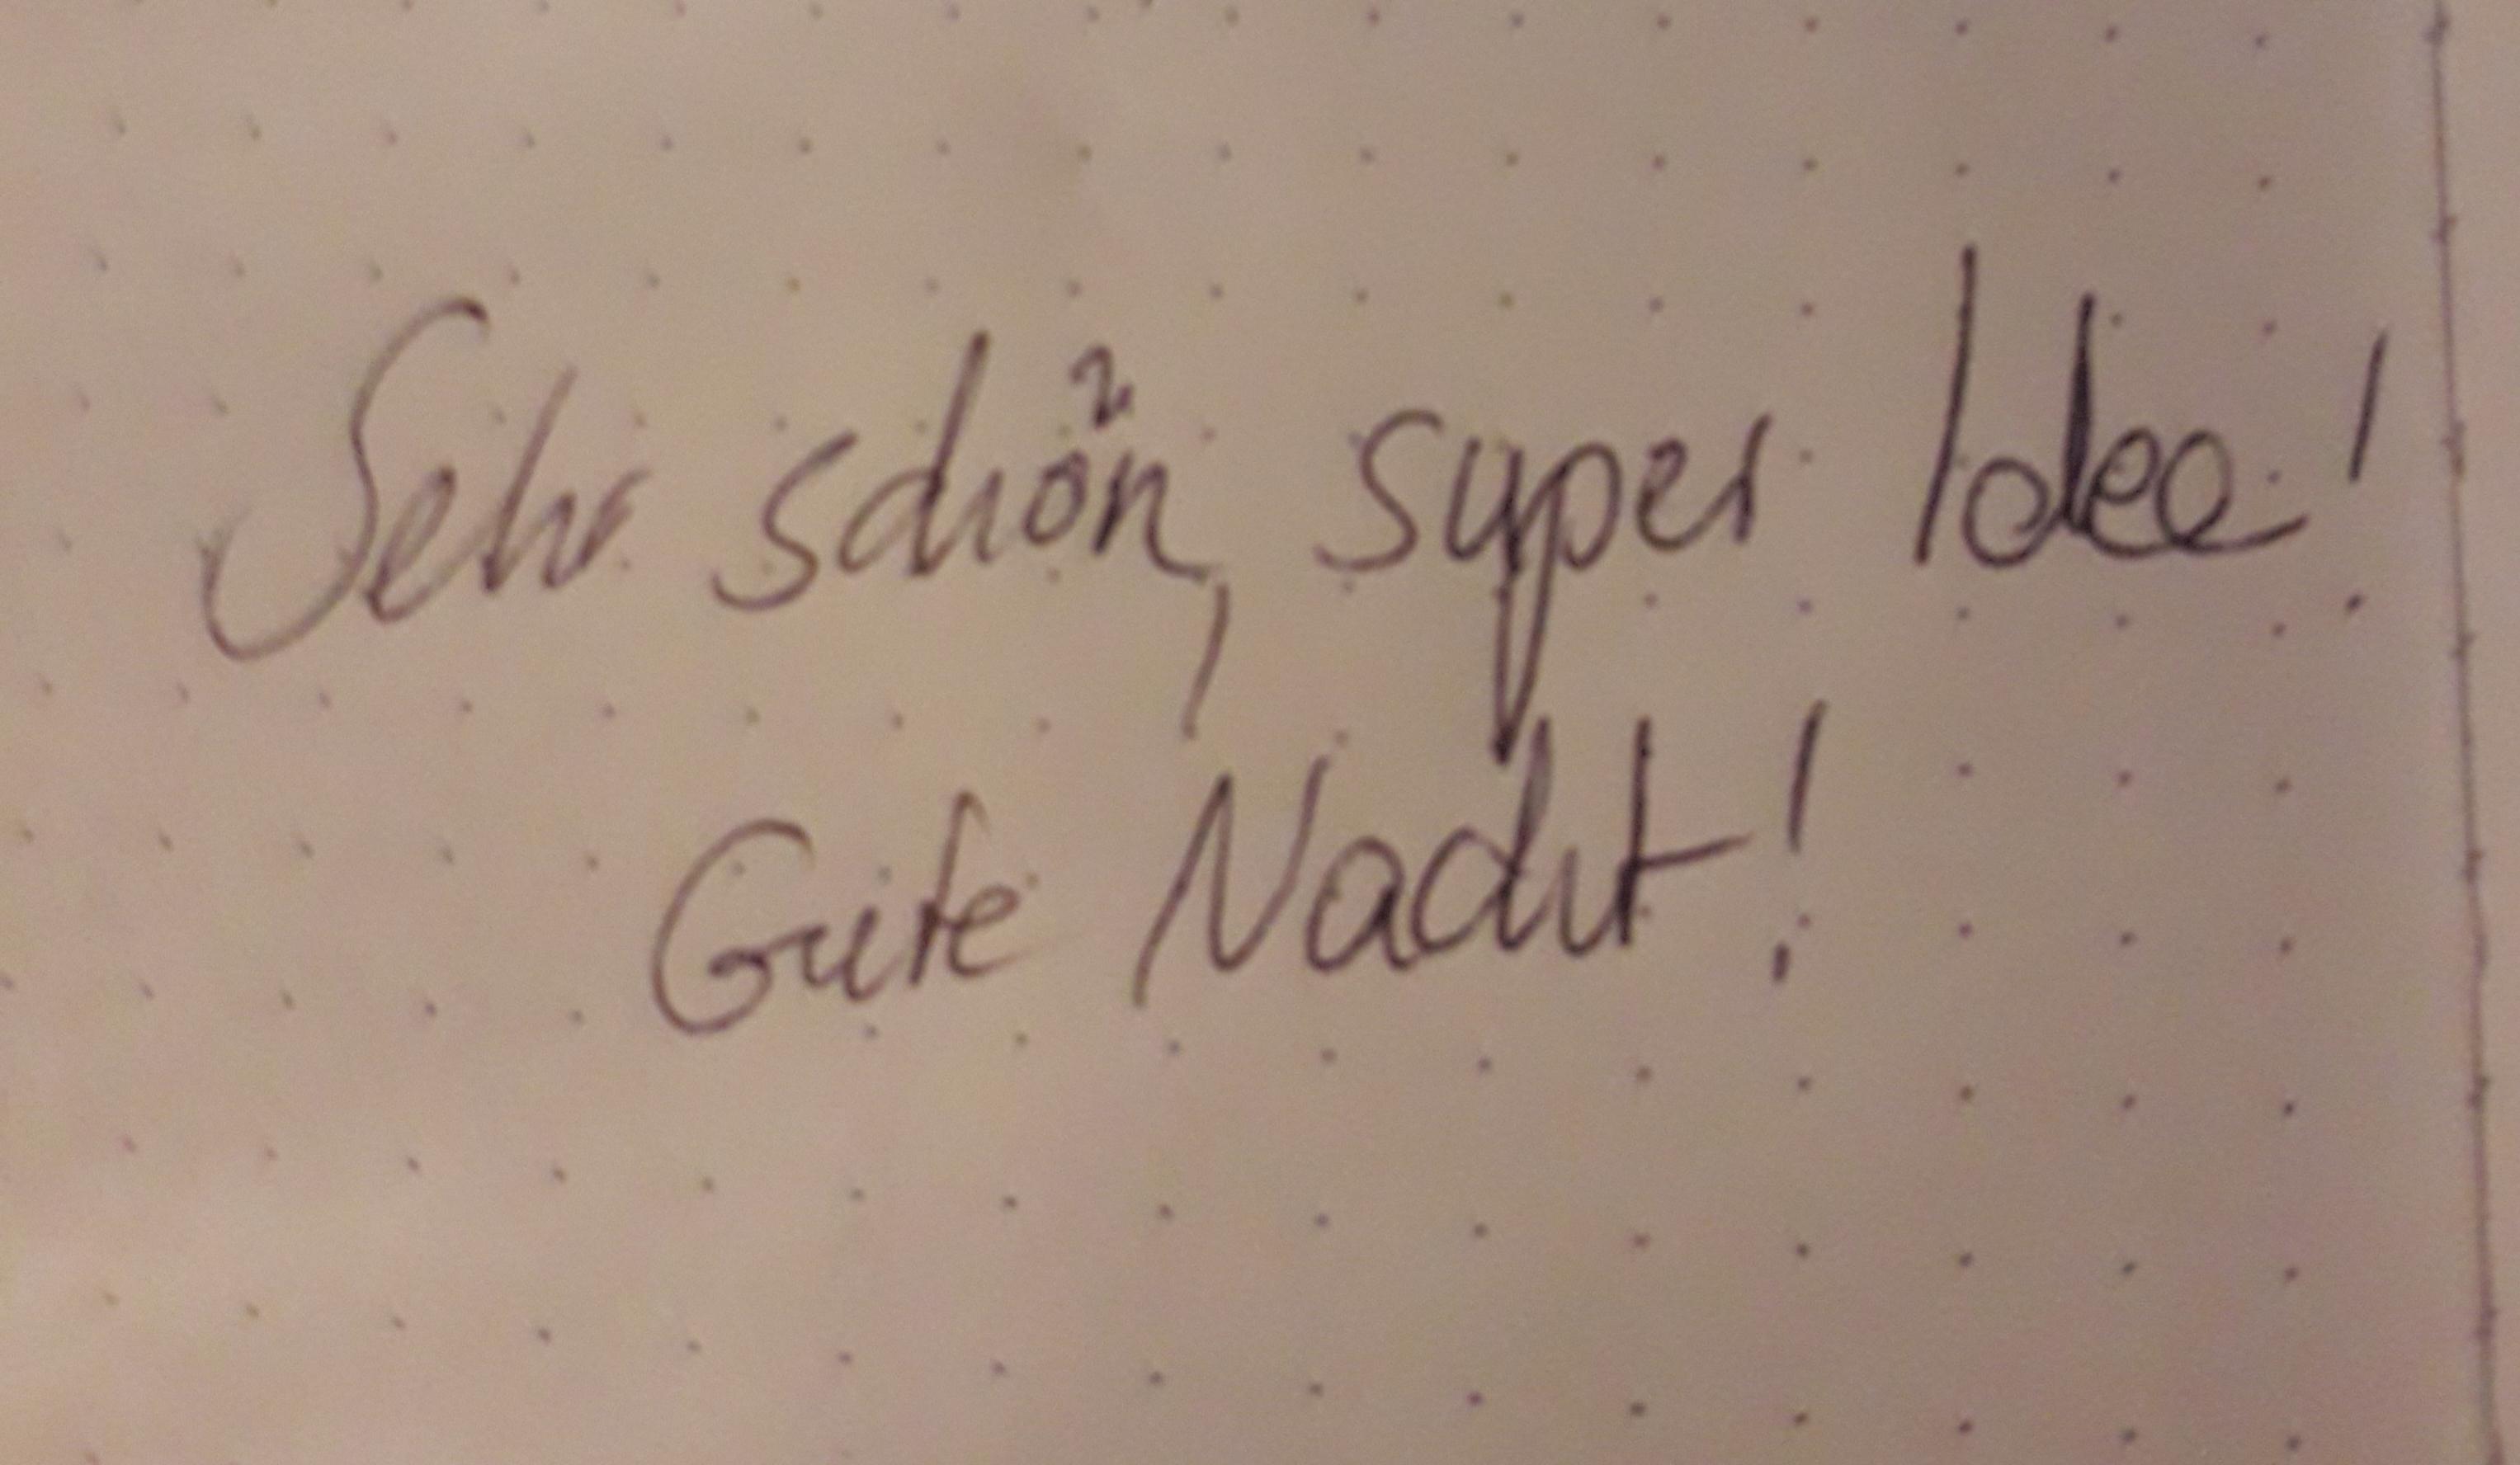 Sehr schön, super Idee!
Gute Nacht!